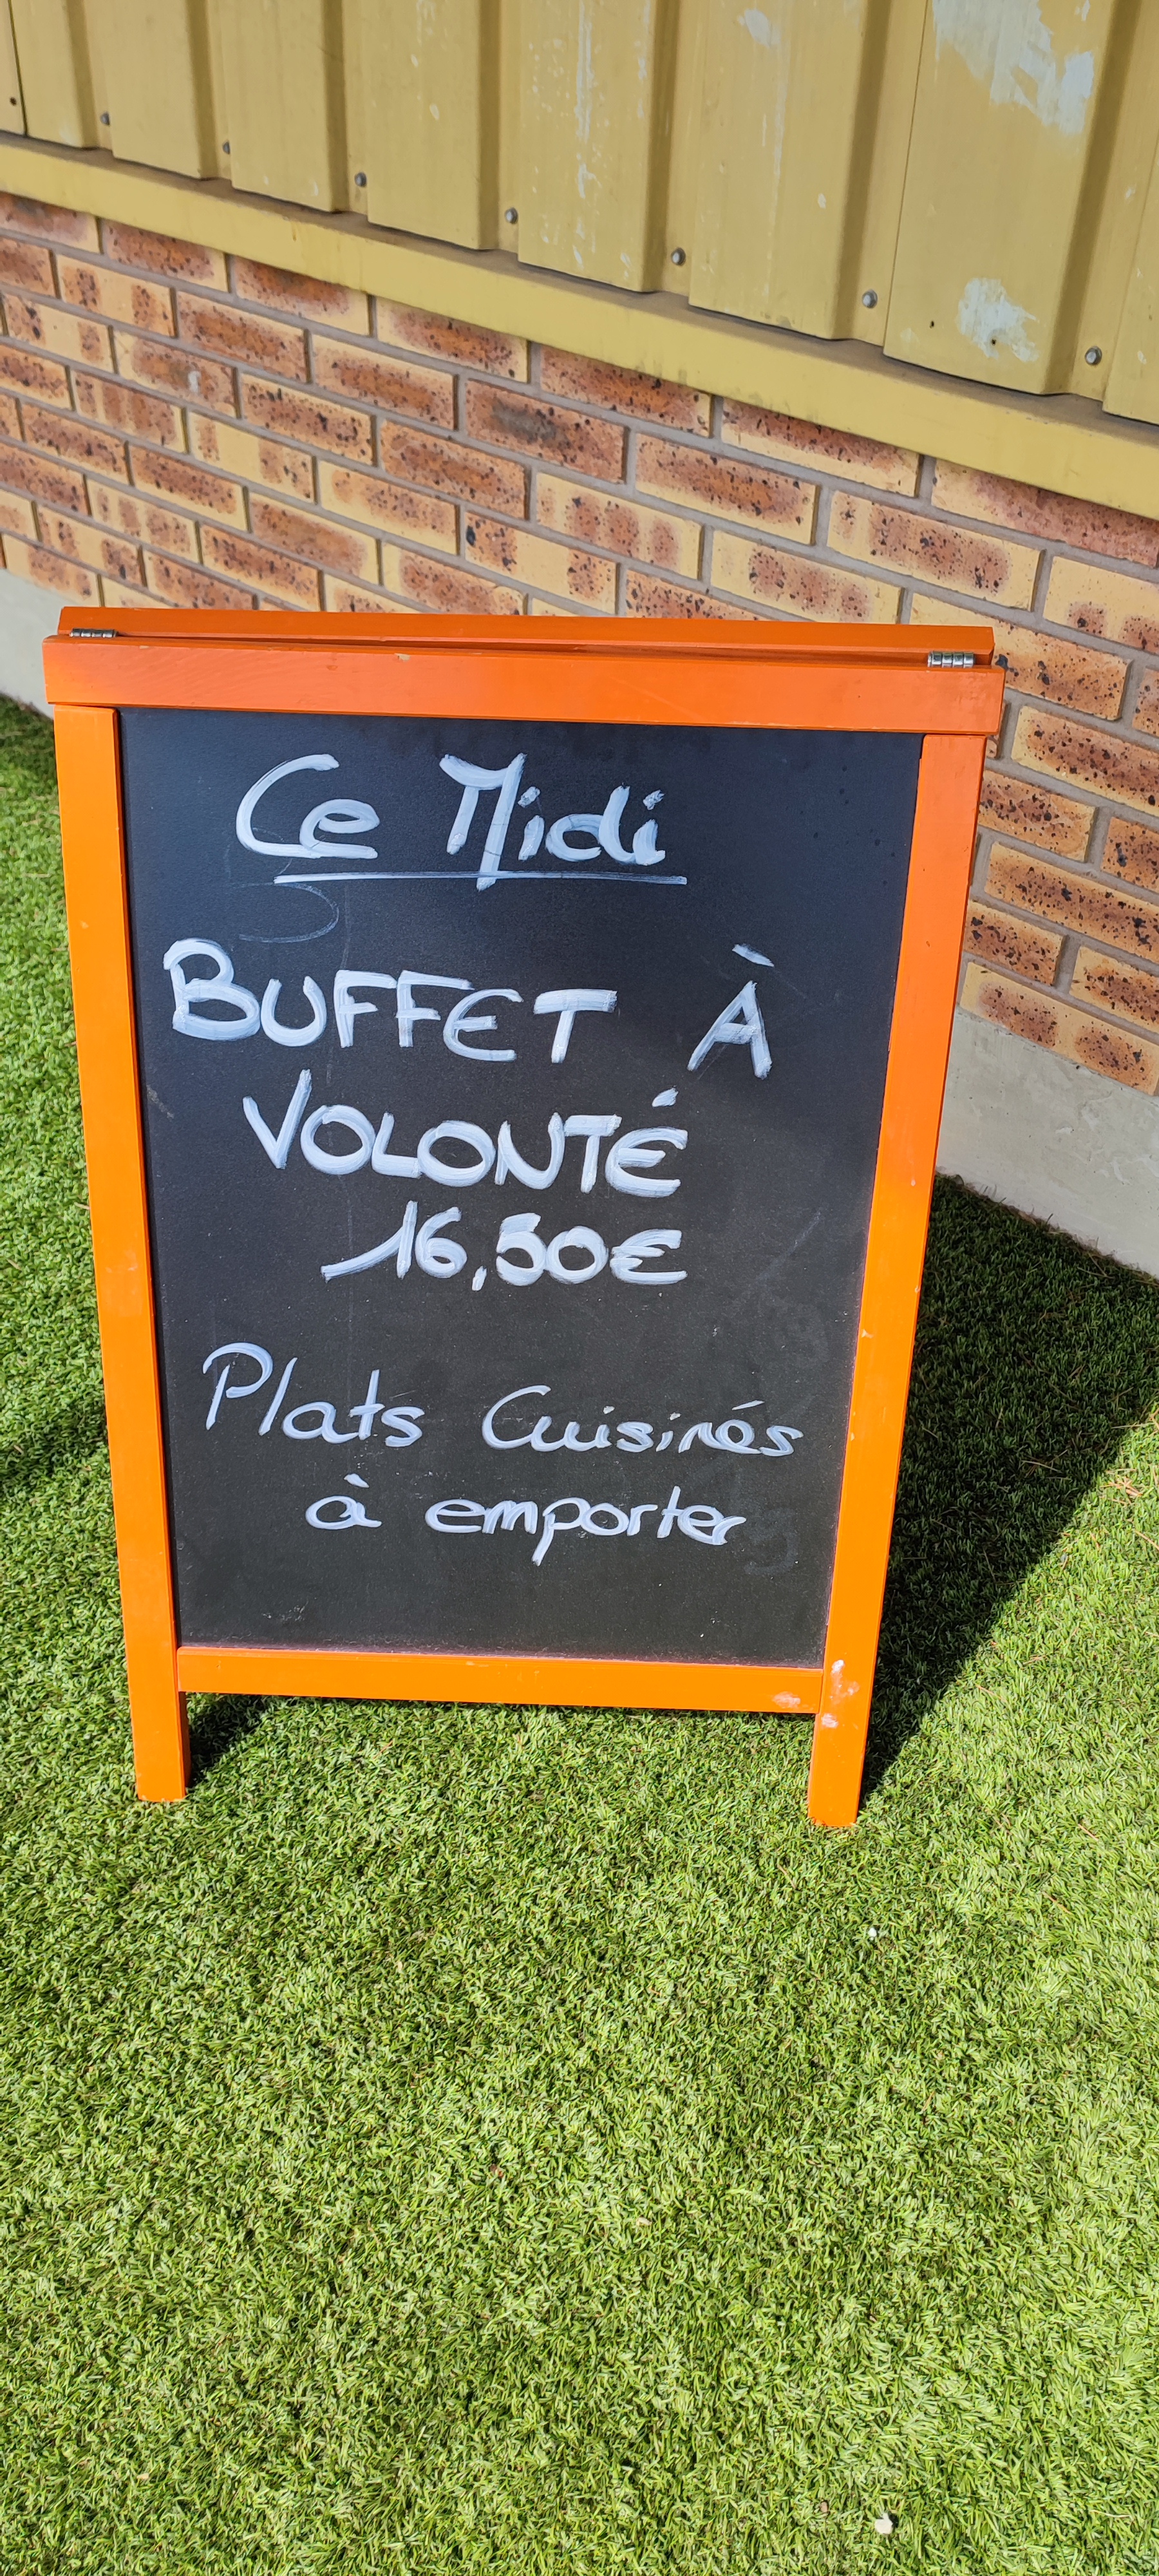 Ce Midi
BUFFET À
VOLONTÉ
16,50€
Plats Cuisinés
à emporter